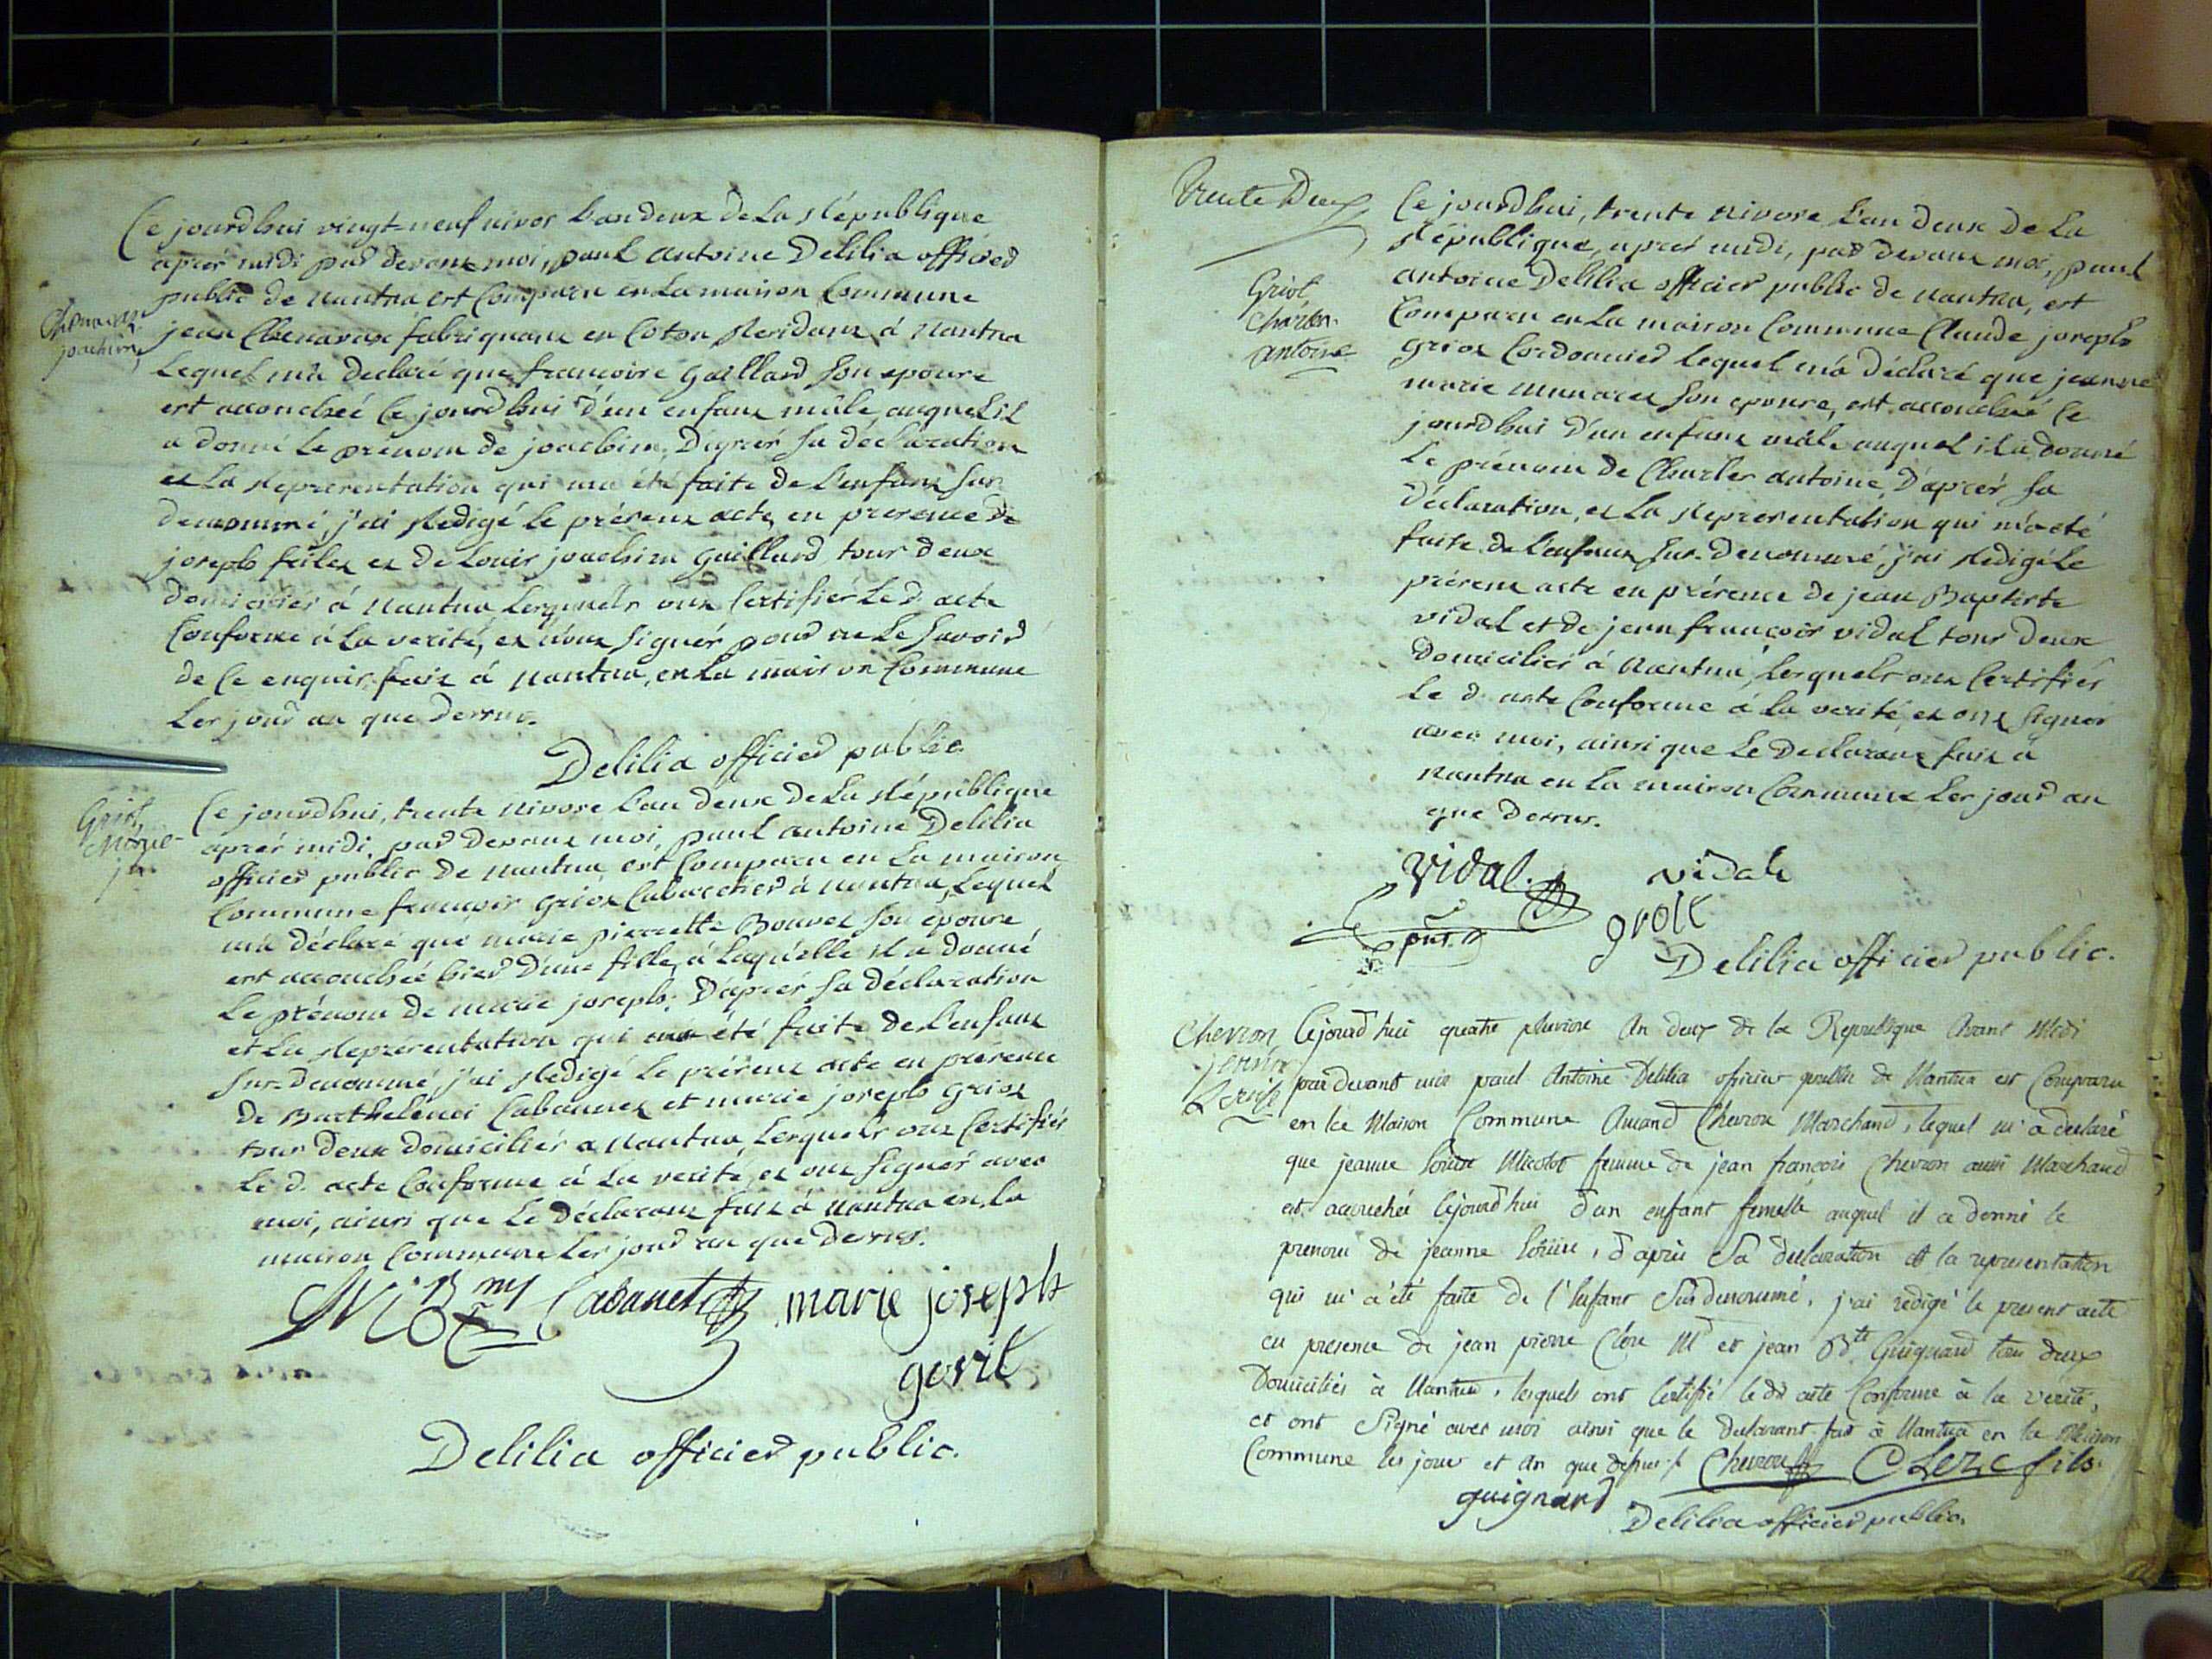 Ce jourdhui vingt-neuf nivos l'an deux de la République
après midi par devant moi, paul antoine Delilia officier
public de nantua est comparu en la maison commune
Chenavax
joachim
jean Chenavax fabriquant en coton Residant à Nantua
Lequel m'a declaré que francoise gaillard son epouse
est accouchée ce jourdhui d'un enfant mâle auquel il
a donné le prénom de joachim, D'après sa déclaration
et la Representation qui m'a été faite de l'enfant sus-
denommé, j'ai Redigé le présent acte, en presence de
joseph et de Louis joachim gaillard, tous deux
domiciliés à nantua, Lesquels ont certifiés Le d. acte
Conforme à la verité, et n'ont signés pour ne le savoir
de ce enquis. fait à nantua, en la maison commune
Les jour an que dessus.
Delilia officier public.
Griot,
Marie-
js.
Ce jourdhui, trente nivose l'an deux de la République
après midi, par devant moi, paul antoine Delilia
officier public de nantua est comparu en la maison
commune françois griot Cabaretier à nantua, Lequel
m'a déclaré que marie pierrette Bouvet son épouse
est accouchée hier d'une fille, à laquelle il a donné
Le prénom de marie joseph; D'après sa déclaration
et la Représentation qui m'a été faite de l'enfant
sus-denommé, j'ai Redigé le présent acte en présence
de Barthelemi Cabannet et marie joseph griot
tous deux domiciliés a nantua, Lesquels ont certifiés
Le d. acte conforme à la verité, et ont signés avec
moi, ainsi que le déclarant fait à nantua en la
maison commune Les jour an que dessus.
Cabanet marie joseph
gorit
Delilia officier public.
trente Deux
Griot
charles
antoine
Ce jourdhui, trente nivose l'an deux de la
République, après midi, par devant moi, paul
antoine Delilia officier public de nantua, est
comparu en la maison commune Claude joseph
griot cordonnier lequel m'a déclaré que jeanne
marie son epouse, est accouchée ce
jourdhui d'un enfant mâle auquel il a donné
le prénom de Charles antoine, D'après sa
déclaration, et la Representation qui m'a été
faite de l'enfant sus-denommé, j'ai Redigé le
présent acte en présence de jean Baptiste
vidal et de jean françois vidal tous deux
domiciliés à Nantua, Lesquels ont certifiés
Le d. acte conforme à la verité, et ont signés
avec moi, ainsi que le Declarant fait à
nantua en la maison commune Les jour an
que dessus.
vidal. vidale
groit
Delilia officier public.
Chevron
jeanne
Louise
Cejourd'hui quatre pluviose An deux de la Republique Avant Midi
par devant moi paul Antoine Delilia officier public de Nantua est Comparu
en la Maison Commune Amand Chevron Marchand, lequel m'a declaré
que jeanne Louise Micolot femme de jean françois Chevron aussi Marchand
est accouchée cejourd'hui d'un enfant femelle auquel il a donné le
prenom de jeanne Louise, d'après Sa declaration et la representation
qui m'a été faite de l'Enfant Susdenommé, j'ai redigé le present acte
en presence de jean pierre Clerc Md et jean Bte Guignard tous deux
Domiciliés à Nantua, lesquels ont Certifié ledit acte Conforme à la verité,
et ont Signé avec moi ainsi que le Declarant fait à Nantua en la Maison
Commune les jour et an que dessus. Chevron Clerc fils
guignard
Delilia officier public.